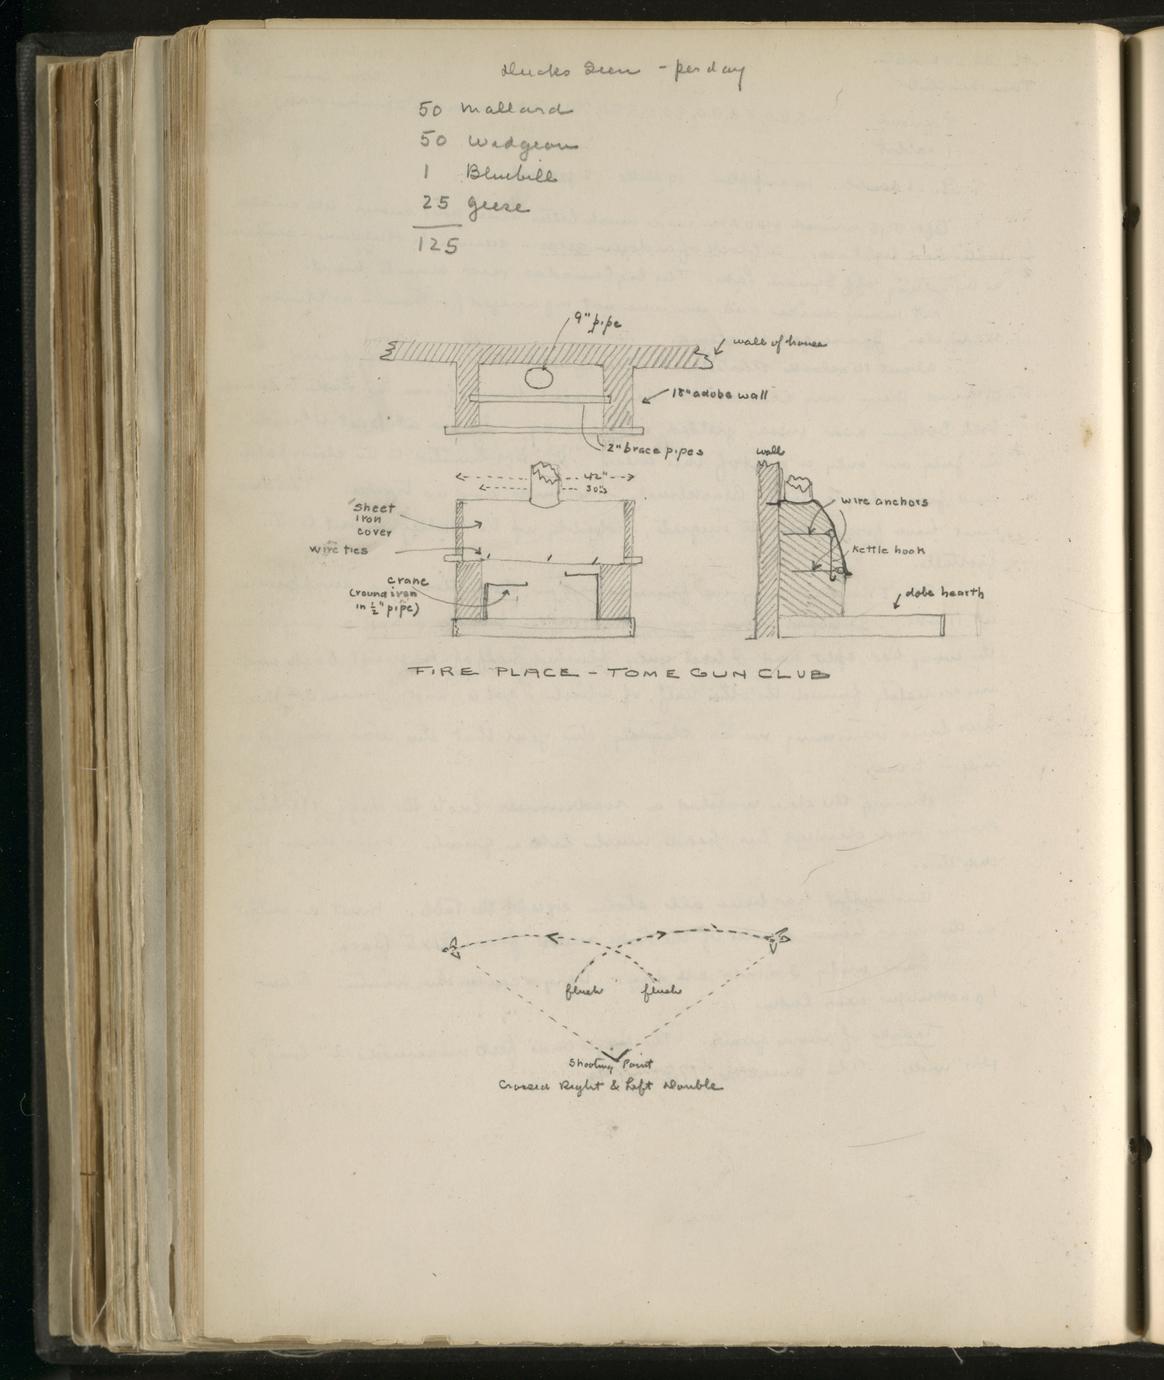 Ducks Seen - per day
50 Mallard
50 Widgeon
1 Bluebill
25 geese
125
9" pipe
wall of house
18" adobe wall
2" brace pipes
wall
42"
30"
sheet
iron
cover
wire ties
crane
(round iron
in ½" pipe)
wire anchors
kettle hook
dobe hearth
FIRE PLACE - TOME GUN CLUB
flush flush
Shooting Point
Crossed Right & Left Double